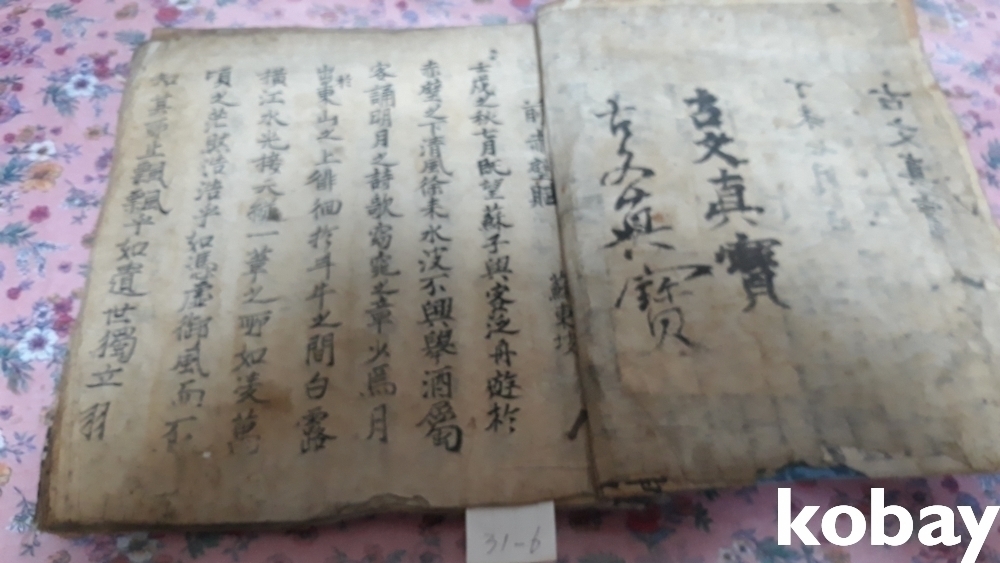 古文眞寶
古文眞寶
古文眞寶
前赤壁賦 蘇東坡
壬戌之秋七月旣望蘇子與客泛舟遊於
赤壁之下淸風徐來水波不興擧酒屬
客誦明月之詩歌窈窕之章少焉月
出於東山之上徘徊於斗牛之間白露
橫江水光接天縱一葦之所如凌萬
頃之茫然浩浩乎如馮虛御風而不
知其所止飄飄乎如遺世獨立羽
31-6
kobay